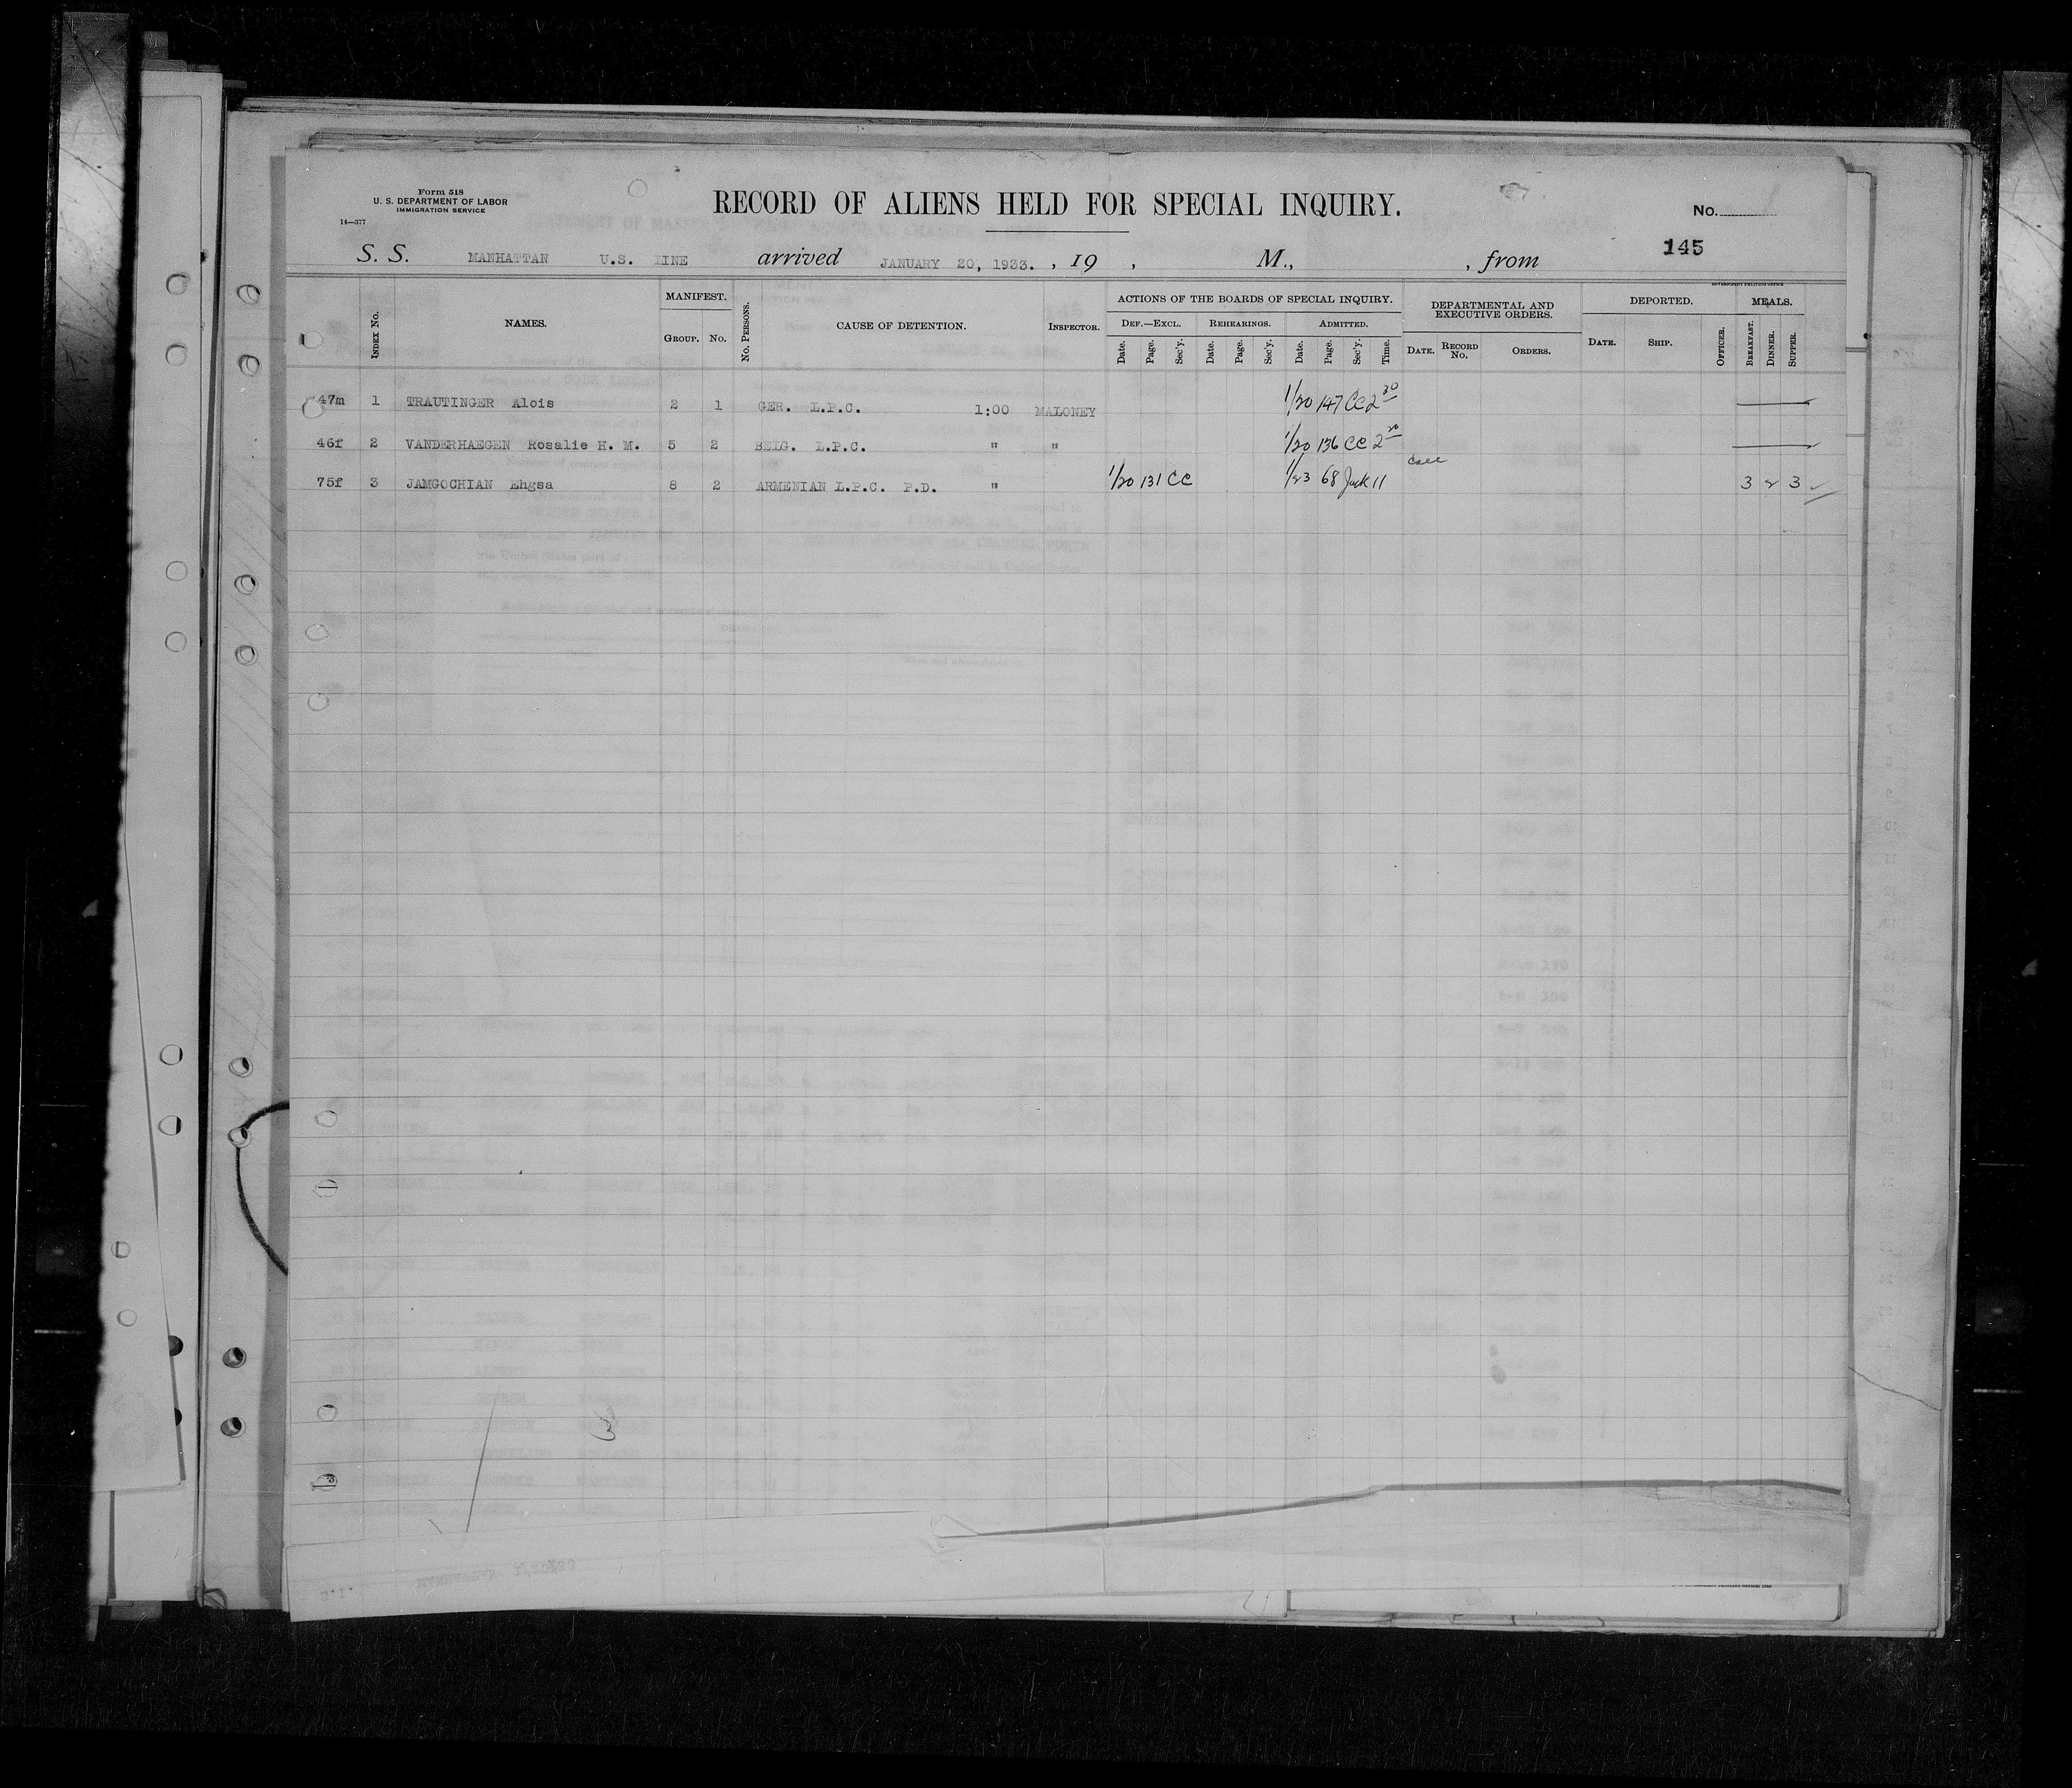 Form 518
U. S. DEPARTMENT OF LABOR
IMMIGRATION SERVICE
14—377
RECORD OF ALIENS HELD FOR SPECIAL INQUIRY.
No.
145
S. S. MANHATTAN U.S. LINE arrived JANUARY 20, 1933. , 19 , M., , from
INDEX No. NAMES. MANIFEST. GROUP. No. No. PERSONS. CAUSE OF DETENTION. INSPECTOR. ACTIONS OF THE BOARDS OF SPECIAL INQUIRY. DEF.—EXCL. Date. Page. Sec'y. REHEARINGS. Date. Page. Sec'y. ADMITTED. Date. Page. Sec'y. Time. DEPARTMENTAL AND EXECUTIVE ORDERS. DATE. RECORD No. ORDERS. DEPORTED. DATE. SHIP. OFFICER. MEALS. BREAKFAST. DINNER. SUPPER.
47m 1 TRAUTINGER Alois 2 1 GER. L.P.C. 1:00 MALONEY 1/20 147 CC 2 30
46f 2 VANDERHAEGEN Rosalie H. M. 5 2 BELG. L.P.C. " " 1/20 136 CC 2
75f 3 JAMGOCHIAN Ehgsa 8 2 ARMENIAN L.P.C. P.D. " 1/20 131 CC 1/23 68 11 3 2 3
3
S.I. MANHATTAN 1/20/33